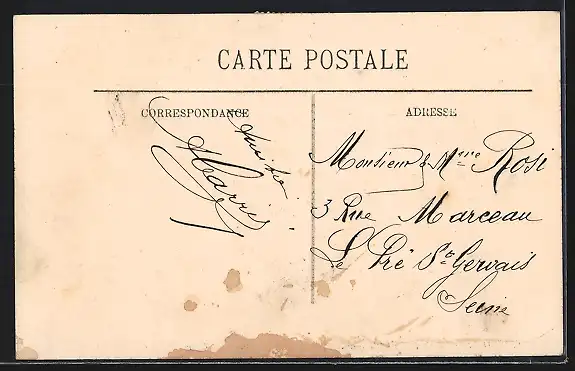 CARTE POSTALE
CORRESPONDANCE
ADRESSE
Harris
Monsieur & Mme Rosi
3 Rue Marceau
Le Pré St Gervais
Seine